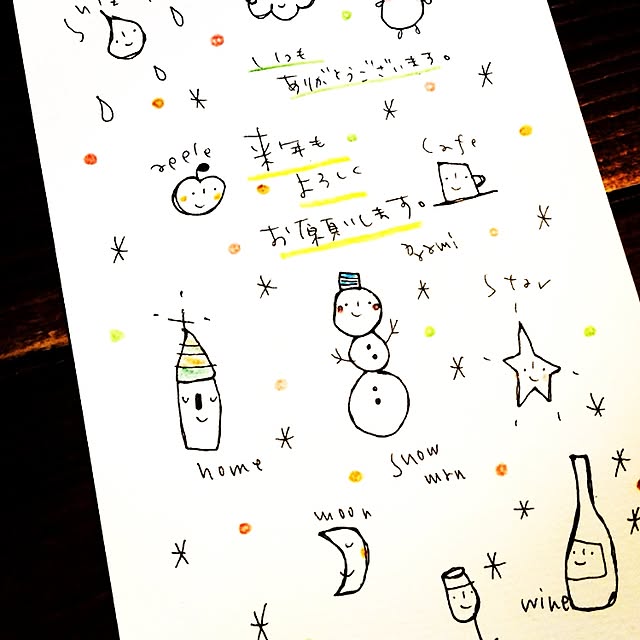 いつも
ありがとうございます。
apple
来年も
よろしく
お願いします。
Cafe
gami
Star
home
Snow
man
moon
wine